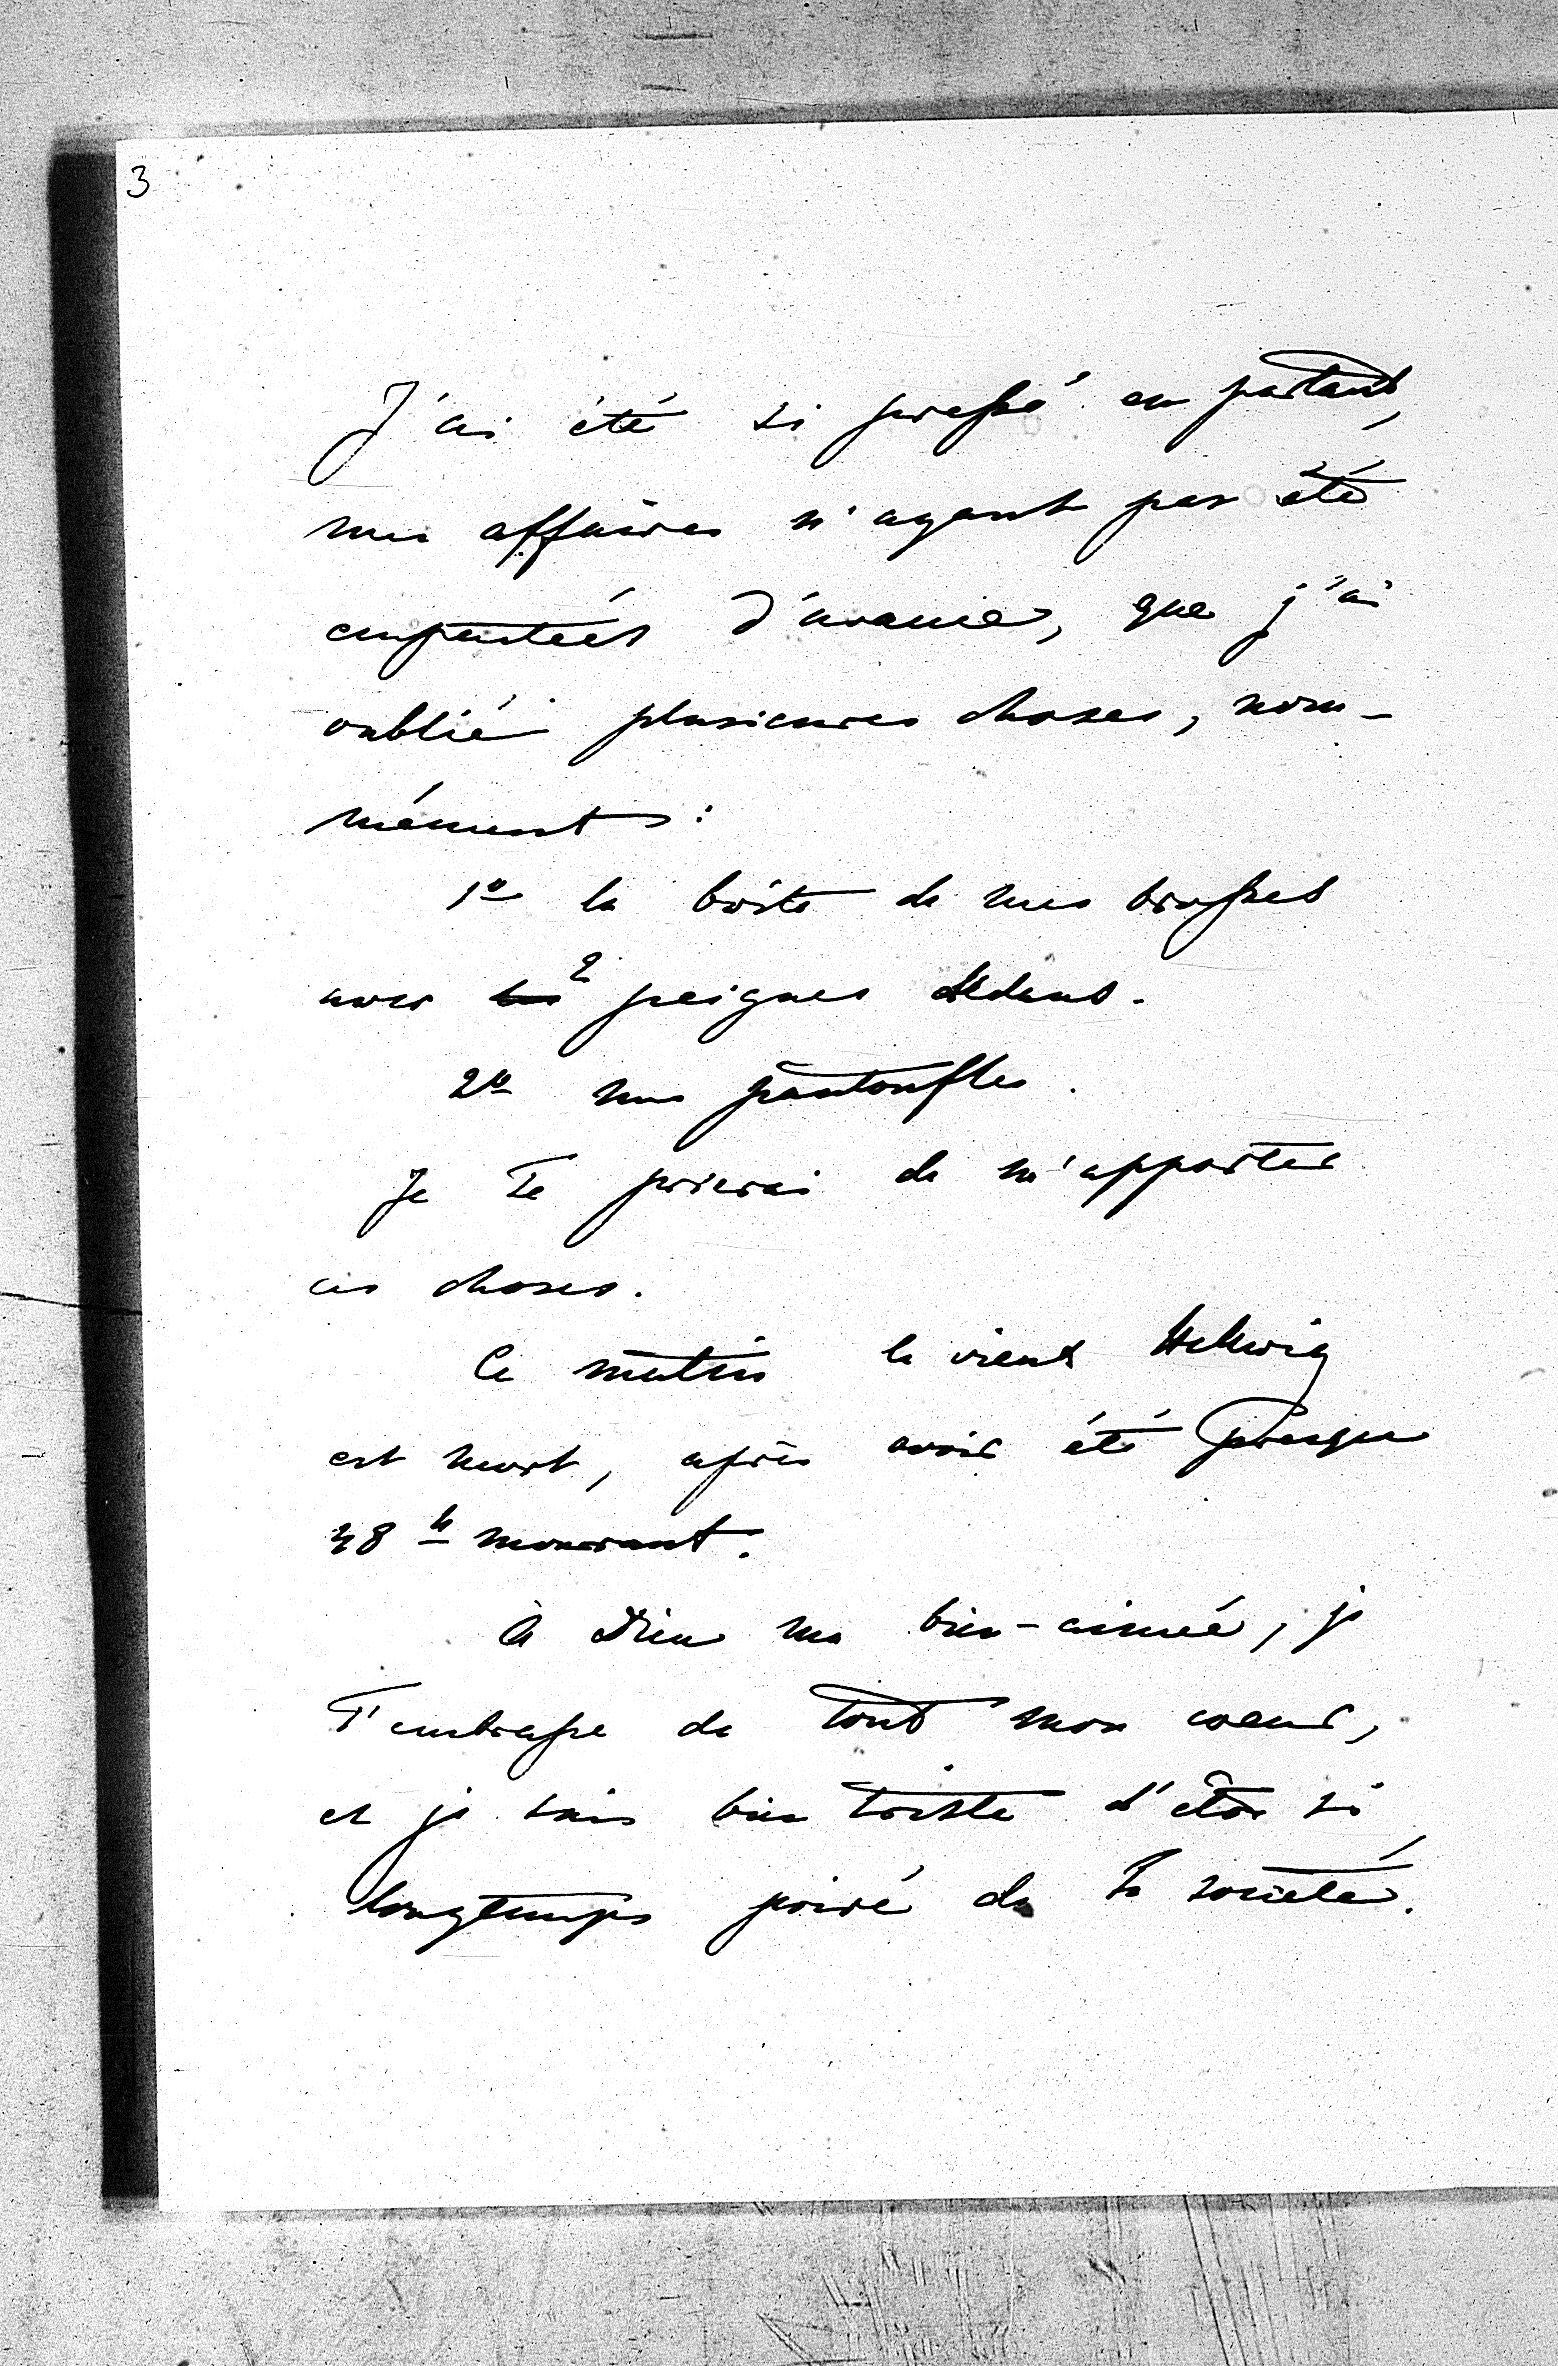 3
J'ai été si pressé en partant,
mes affaires n'ayant pas été
empactées d'avance, que j'ai
oublié plusieures choses, nom-
mément:
1º la boîte de mes brosses
avec 2 peignes dedans.
2º mes pantoufles.
Je Te prierai de m'apporter
ces choses.
Ce matin le vieux Helwig
est mort, après avoir été presque
48 h mourant.
À Dieu ma bien-aimée, je
T'embrasse de tout mon coeur,
et je suis bien triste d'être si
longtemps privé de Ta société.